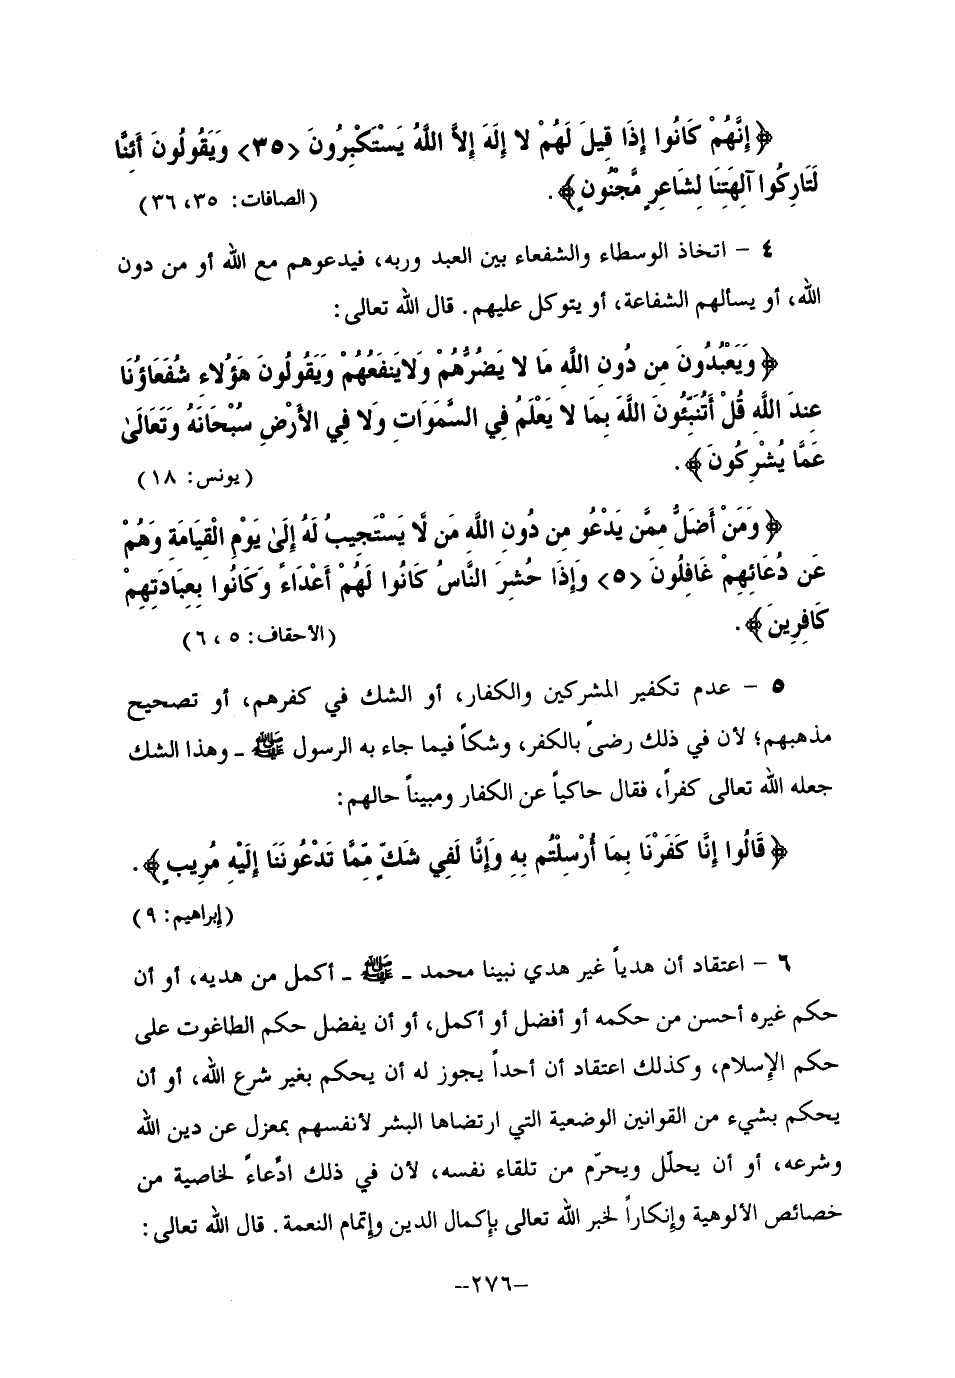 ﴿إِنَّهُمْ كَانُوا إِذَا قِيلَ لَهُمْ لا إِلَهَ إِلاَّ اللَّهُ يَسْتَكْبِرُونَ <٣٥> وَيَقُولُونَ أَئِنَّا
لَتَارِكُوا آلِهَتِنَا لِشَاعِرٍ مَّجْنُونٍ﴾.
(الصافات: ٣٥، ٣٦)
٤ - اتخاذ الوسطاء والشفعاء بين العبد وربه، فيدعوهم مع الله أو من دون
الله، أو يسألهم الشفاعة، أو يتوكل عليهم. قال الله تعالى:
﴿وَيَعْبُدُونَ مِن دُونِ اللَّهِ مَا لا يَضُرُّهُمْ وَلاَيَنفَعُهُمْ وَيَقُولُونَ هَؤُلاءِ شُفَعَاؤُنَا
عِندَ اللَّهِ قُلْ أَتُنَبِّئُونَ اللَّهَ بِمَا لا يَعْلَمُ فِي السَّمَوَاتِ وَلا فِي الأَرْضِ سُبْحَانَهُ وَتَعَالَىٰ
عَمَّا يُشْرِكُونَ﴾.
(يونس: ١٨)
﴿وَمَنْ أَضَلُّ مِمَّن يَدْعُو مِن دُونِ اللَّهِ مَن لَّا يَسْتَجِيبُ لَهُ إِلَىٰ يَوْمِ الْقِيَامَةِ وَهُمْ
عَن دُعَائِهِمْ غَافِلُونَ <٥> وَإِذَا حُشِرَ النَّاسُ كَانُوا لَهُمْ أَعْدَاءً وَكَانُوا بِعِبَادَتِهِمْ
كَافِرِينَ﴾.
(الأحقاف: ٥، ٦)
٥ - عدم تكفير المشركين والكفار، أو الشك في كفرهم، أو تصحيح
مذهبهم؛ لأن في ذلك رضىً بالكفر، وشكاً فيما جاء به الرسول ﷺ ـ وهذا الشك
جعله الله تعالى كفراً، فقال حاكياً عن الكفار ومبيناً حالهم:
﴿قَالُوا إِنَّا كَفَرْنَا بِمَا أُرْسِلْتُم بِهِ وَإِنَّا لَفِي شَكٍّ مِّمَّا تَدْعُونَنَا إِلَيْهِ مُرِيبٍ﴾.
(إبراهيم: ٩)
٦ - اعتقاد أن هدياً غير هدي نبينا محمد ـ ﷺ ـ أكمل من هديه، أو أن
حكم غيره أحسن من حكمه أو أفضل أو أكمل، أو أن يفضل حكم الطاغوت على
حكم الإسلام، وكذلك اعتقاد أن أحداً يجوز له أن يحكم بغير شرع الله، أو أن
يحكم بشيء من القوانين الوضعية التي ارتضاها البشر لأنفسهم بمعزل عن دين الله
وشرعه، أو أن يحلّل ويحرّم من تلقاء نفسه، لأن في ذلك ادِّعاءً لخاصية من
خصائص الألوهية وإنكاراً لخبر الله تعالى بإكمال الدين وإتمام النعمة. قال الله تعالى:
-٢٧٦--